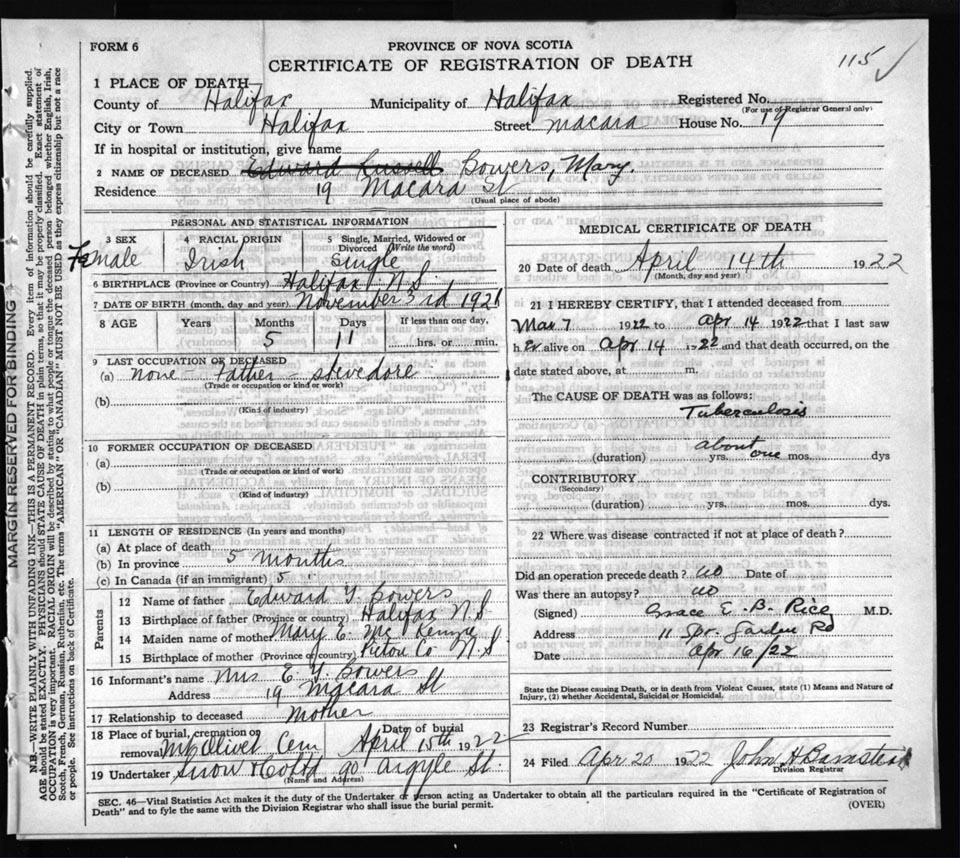 FORM 6
PROVINCE OF NOVA SCOTIA
CERTIFICATE OF REGISTRATION OF DEATH
115 ✓
1 PLACE OF DEATH—
County of Halifax Municipality of Halifax Registered No.
(For use of Registrar General only)
City or Town Halifax Street Macara House No. 19
If in hospital or institution, give name
2 NAME OF DECEASED Edward Russell Bowers, Mary.
Residence 19 Macara St
(Usual place of abode)
PERSONAL AND STATISTICAL INFORMATION
3 SEX 4 RACIAL ORIGIN 5 Single, Married, Widowed or Divorced (Write the word)
Female Irish Single
6 BIRTHPLACE (Province or Country) Halifax N.S.
7 DATE OF BIRTH (month, day and year) November 3rd 1921
8 AGE Years Months Days If less than one day,
5 11 hrs. or min.
9 LAST OCCUPATION OF DECEASED
(a) None - Father - Stevedore
(Trade or occupation or kind or work)
(b)
(Kind of industry)
10 FORMER OCCUPATION OF DECEASED
(a)
(Trade or occupation or kind of work)
(b)
(Kind of industry)
11 LENGTH OF RESIDENCE (In years and months)
(a) At place of death
(b) In province 5 months
(c) In Canada (if an immigrant) 5
Parents
12 Name of father Edward Y. Bowers
13 Birthplace of father (Province or country) Halifax N.S
14 Maiden name of mother Mary E. Mc Kenzie
15 Birthplace of mother (Province or country) Pictou Co N.S
16 Informant's name Mrs E. Y. Bowers
Address 19 Macara St
17 Relationship to deceased Mother
18 Place of burial, cremation or removal Mt Olivet Cem Date of burial April 15th 1922
19 Undertaker Snow & Co Ltd 90 Argyle St.
(Name and Address)
MEDICAL CERTIFICATE OF DEATH
20 Date of death April 14th 1922
(Month, day and year)
21 I HEREBY CERTIFY, that I attended deceased from
Mar 7 1922 to Apr 14 1922 that I last saw
h er alive on Apr 14 1922 and that death occurred, on the
date stated above, at m.
The CAUSE OF DEATH was as follows:
Tuberculosis
about one
(duration) yrs. mos. dys
CONTRIBUTORY
(Secondary)
(duration) yrs. mos. dys.
22 Where was disease contracted if not at place of death?
Did an operation precede death? no Date of
Was there an autopsy? no
(Signed) Grace E. B. Rice M.D.
Address 11 Spr. Garden Rd
Date Apr 16/22
State the Disease causing Death, or in death from Violent Causes, state (1) Means and Nature of
Injury, (2) whether Accidental, Suicidal or Homicidal.
23 Registrar's Record Number
24 Filed Apr 20 1922 John H Barnstead
Division Registrar
SEC. 46—Vital Statistics Act makes it the duty of the Undertaker or person acting as Undertaker to obtain all the particulars required in the "Certificate of Registration of
Death" and to fyle the same with the Division Registrar who shall issue the burial permit.
(OVER)
MARGIN RESERVED FOR BINDING
N.B.—WRITE PLAINLY, WITH UNFADING INK,—THIS IS A PERMANENT RECORD. Every item of information should be carefully supplied.
AGE should be stated EXACTLY. PHYSICIANS should STATE CAUSE OF DEATH in plain terms, so that it may be properly classified. Exact statement of
OCCUPATION is very important. RACIAL ORIGIN will be described by stating to what people or tongue the deceased person belonged whether English, Irish,
Scotch, French, German, Russian, Ruthenian, etc. The terms "AMERICAN" OR "CANADIAN" MUST NOT BE USED as they express citizenship but not a race
or people. See instructions on back of Certificate.